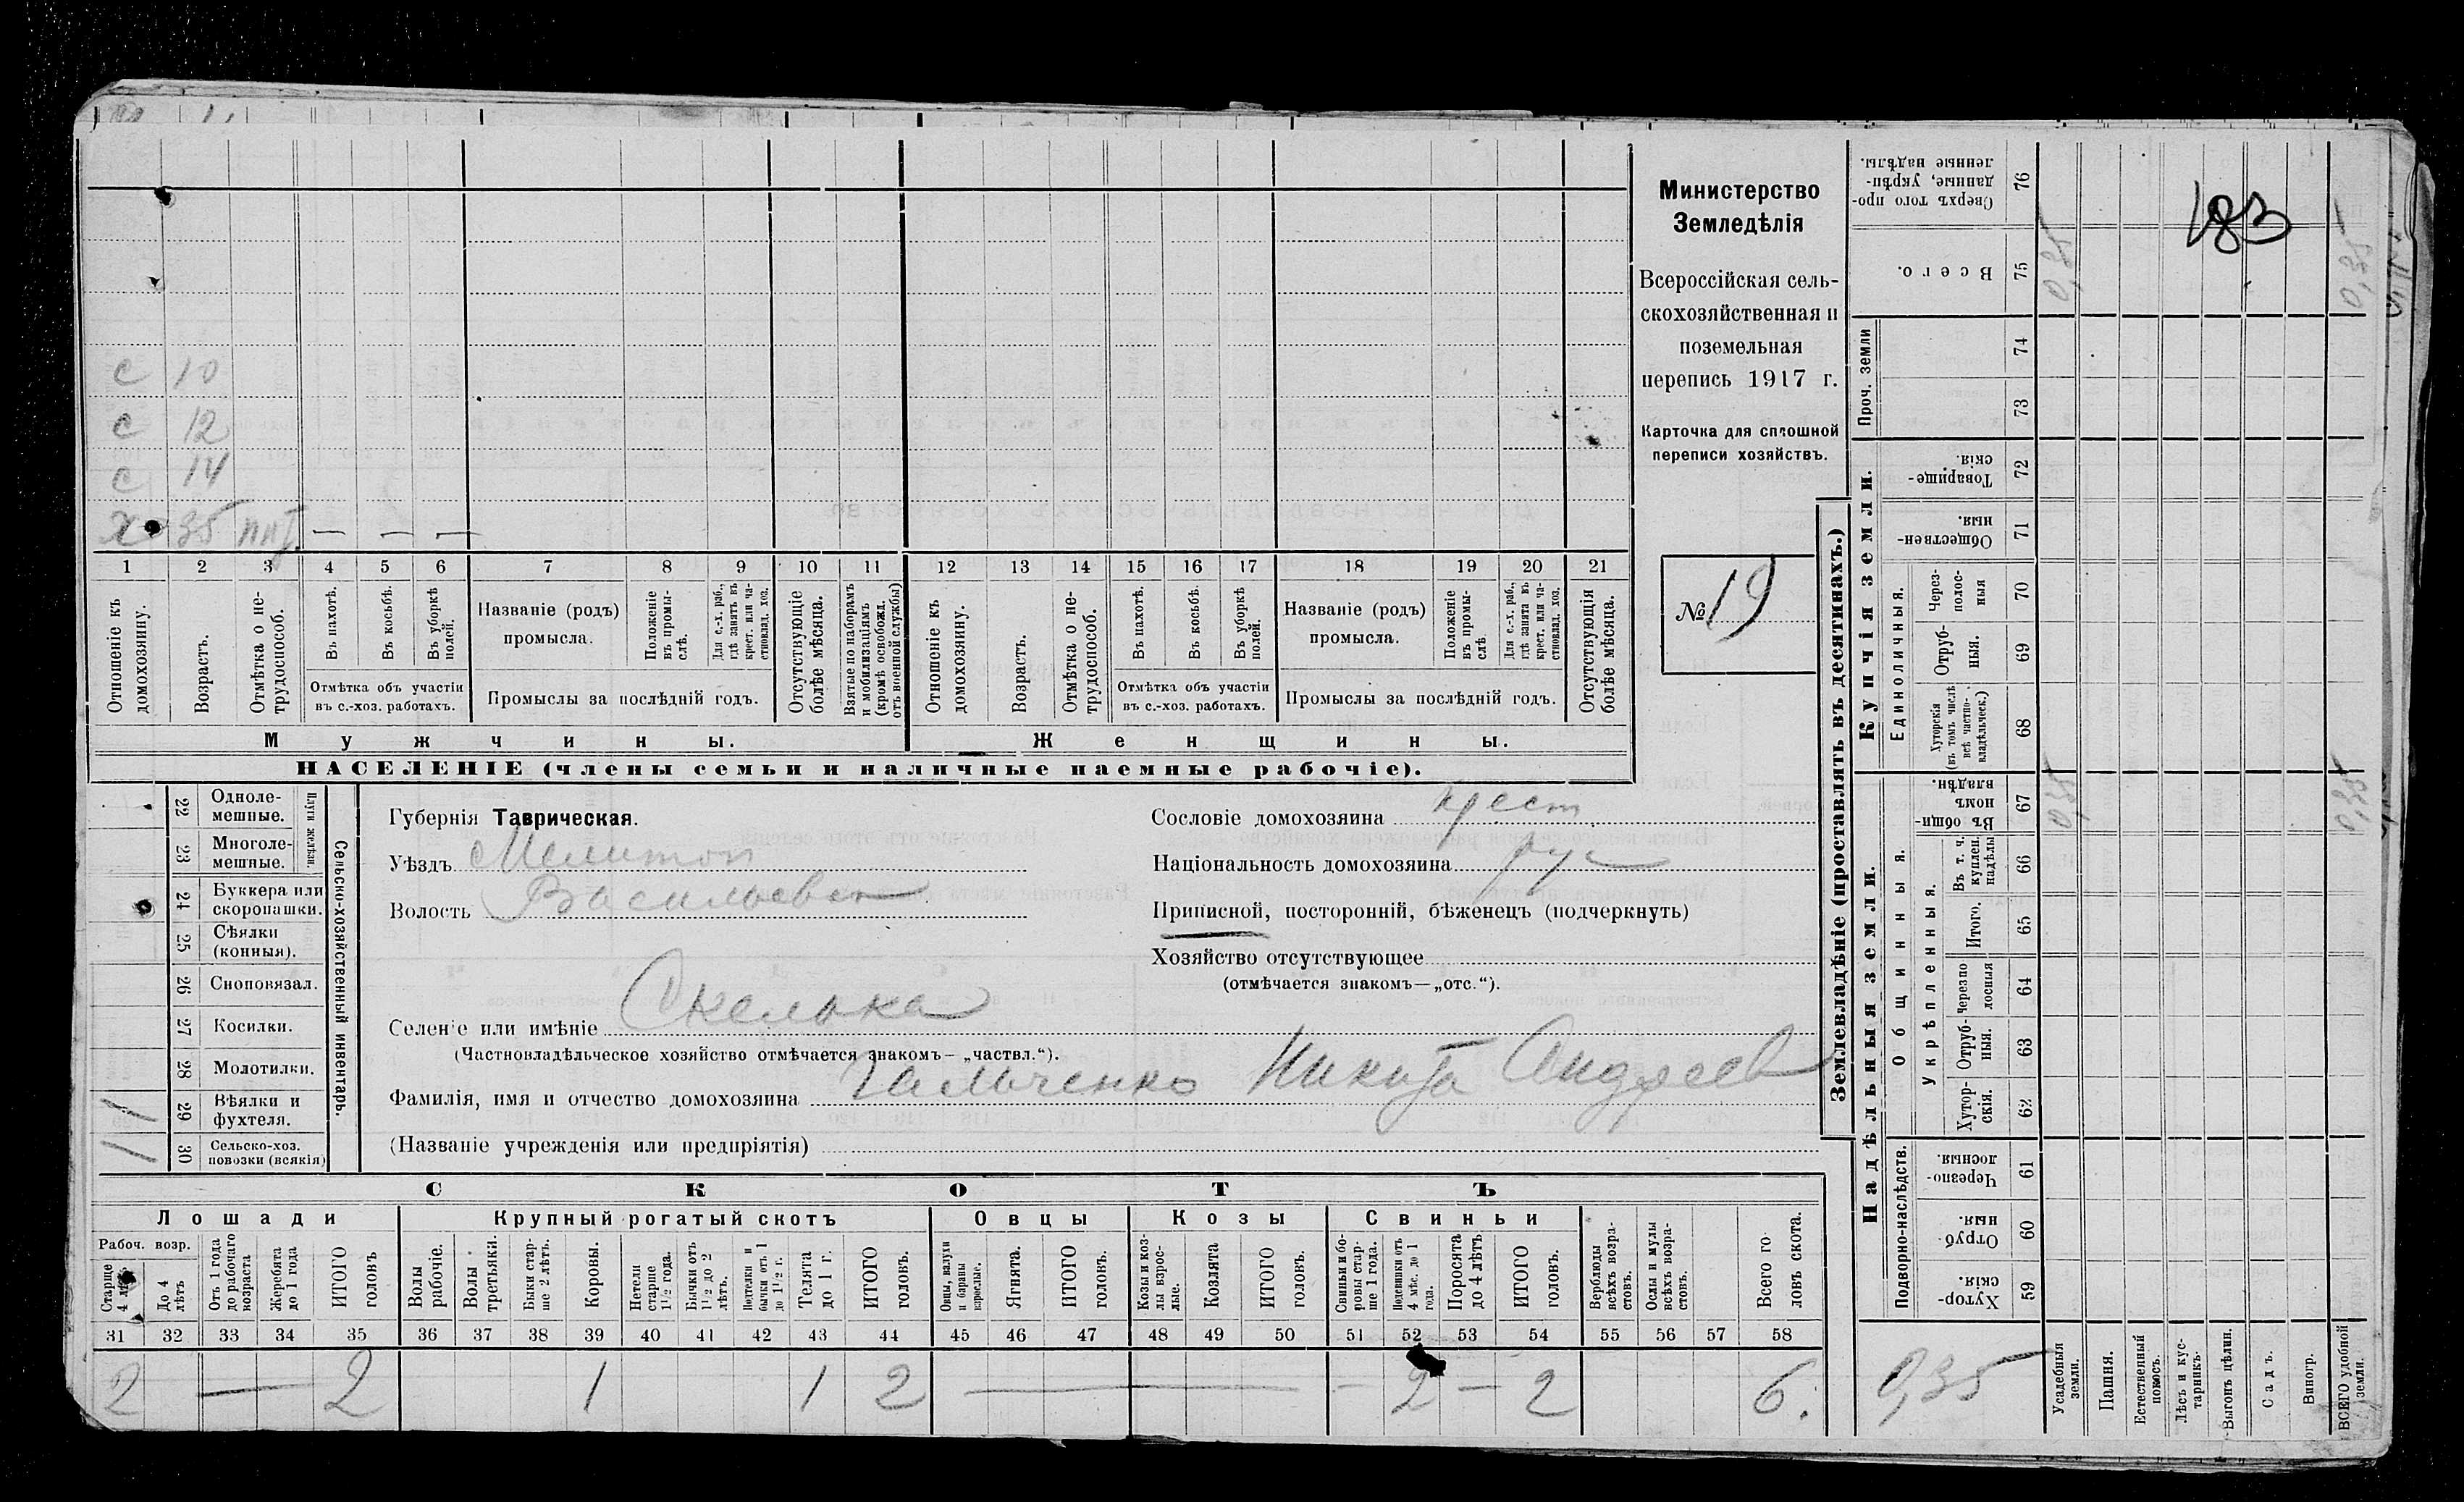 183
Министерство
Земледѣлія
Всероссійская сель-
скохозяйственная и
поземельная
перепись 1917 г.
Карточка для сплошной
переписи хозяйствъ.
№ 19
с 10
с 12
с 14
х 35 — — —
1 2 3 4 5 6 7 8 9 10 11 12 13 14 15 16 17 18 19 20 21
Отношеніе къ домохозяину.
Возрастъ.
Отмѣтка о не-трудоспособ.
Въ пахотѣ.
Въ косьбѣ.
Въ уборкѣ полей.
Отмѣтка объ участіи
въ с.-хоз. работахъ.
Названіе (родъ)
промысла.
Положеніе въ промы-слѣ.
Для с.-х. раб., гдѣ занятъ въ крест. или ча-стновлад. хоз.
Промыслы за послѣдній годъ.
Отсутствующіе болѣе мѣсяца.
Взятые по наборамъ и мобилизаціямъ (кромѣ освобожд. отъ военной службы)
Отношеніе къ домохозяину.
Возрастъ.
Отмѣтка о не-трудоспособ.
Въ пахотѣ.
Въ косьбѣ.
Въ уборкѣ полей.
Отмѣтка объ участіи
въ с.-хоз. работахъ.
Названіе (родъ)
промысла.
Положеніе въ промы-слѣ.
Для с.-х. раб., гдѣ занята въ крест. или ча-стновлад. хоз.
Промыслы за послѣдній годъ.
Отсутствующія болѣе мѣсяца.
Мужчины.
Женщины.
НАСЕЛЕНІЕ (члены семьи и наличные наемные рабочіе).
Сельско-хозяйственный инвентарь.
Плуги желѣзн.
22 Одноле-мешные.
23 Многоле-мешные.
24 Буккера или скоропашки.
25 Сѣялки (конныя).
26 Сноповязал.
27 Косилки.
28 Молотилки.
29 Вѣялки и фухтеля.
30 Сельско-хоз. повозки (всякія)
Губернія Таврическая.
Уѣздъ Мелитоп
Волость Васильевск
Селеніе или имѣніе Скелька
(Частновладѣльческое хозяйство отмѣчается знакомъ— „частвл.“).
Фамилія, имя и отчество домохозяина Гальченко Никита Андреев
(Названіе учрежденія или предпріятія)
Сословіе домохозяина крест
Національность домохозяина рус
Приписной, посторонній, бѣженецъ (подчеркнуть)
Хозяйство отсутствующее
(отмѣчается знакомъ—„отс.“).
СКОТЪ
Лошади
Крупный рогатый скотъ
Овцы
Козы
Свиньи
Рабоч. возр.
Старше 4 лѣтъ
До 4 лѣтъ
Отъ 1 года до рабочаго возраста
Жеребята до 1 года
ИТОГО головъ
Волы рабочіе.
Волы третьяки.
Быки стар-ше 2 лѣтъ.
Коровы.
Нетели старше 1½ года.
Бычки отъ 1½ до 2 лѣтъ.
Подтелки и бычки отъ 1 до 1½ г.
Телята до 1 г.
ИТОГО головъ.
Овцы, валухи и бараны взрослые.
Ягнята.
ИТОГО головъ.
Козы и коз-лы взрос-лые.
Козлята
ИТОГО головъ.
Свиньи и бо-ровы стар-ше 1 года.
Подсвинки отъ 4 мѣс. до 1 года.
Поросята до 4 лѣтъ
ИТОГО головъ.
Верблюды всѣхъ возра-стовъ.
Ослы и мулы всѣхъ возра-стовъ.
Всего го-ловъ скота.
31 32 33 34 35 36 37 38 39 40 41 42 43 44 45 46 47 48 49 50 51 52 53 54 55 56 57 58
2 — 2 1 1 2 — — 2 — 2 6.
Землевладѣніе (проставлять въ десятинахъ.)
Надѣльныя земли.
Купчія земли.
Проч. земли
Подворно-наслѣдств.
Общинныя.
Укрѣпленныя.
Единоличныя.
Хутор-скія. 59
Отруб-ныя. 60
Черезпо-лосныя. 61
Хутор-скія. 62
Отруб-ныя. 63
Черезпо-лосныя 64
Итого. 65
Въ т. ч. куплен. надѣлы 66
Въ общи-номъ владѣн. 67
Хуторскія (въ томъ числѣ всѣ частно-владѣльческ.) 68
Отруб-ныя. 69
Через-полос-ныя 70
Обществен-ныя. 71
Товарище-скія. 72
73
74
Всего. 75
Сверхъ того про-данные, укрѣп-ленные надѣлы. 76
Усадебныя земли.
Пашня.
Естественный покосъ.
Лѣсъ и кус-тарникъ.
Выгонъ цѣлин.
Садъ.
Виногр.
ВСЕГО удобной земли.
0,35
0,35
0,35
0,35
0,35